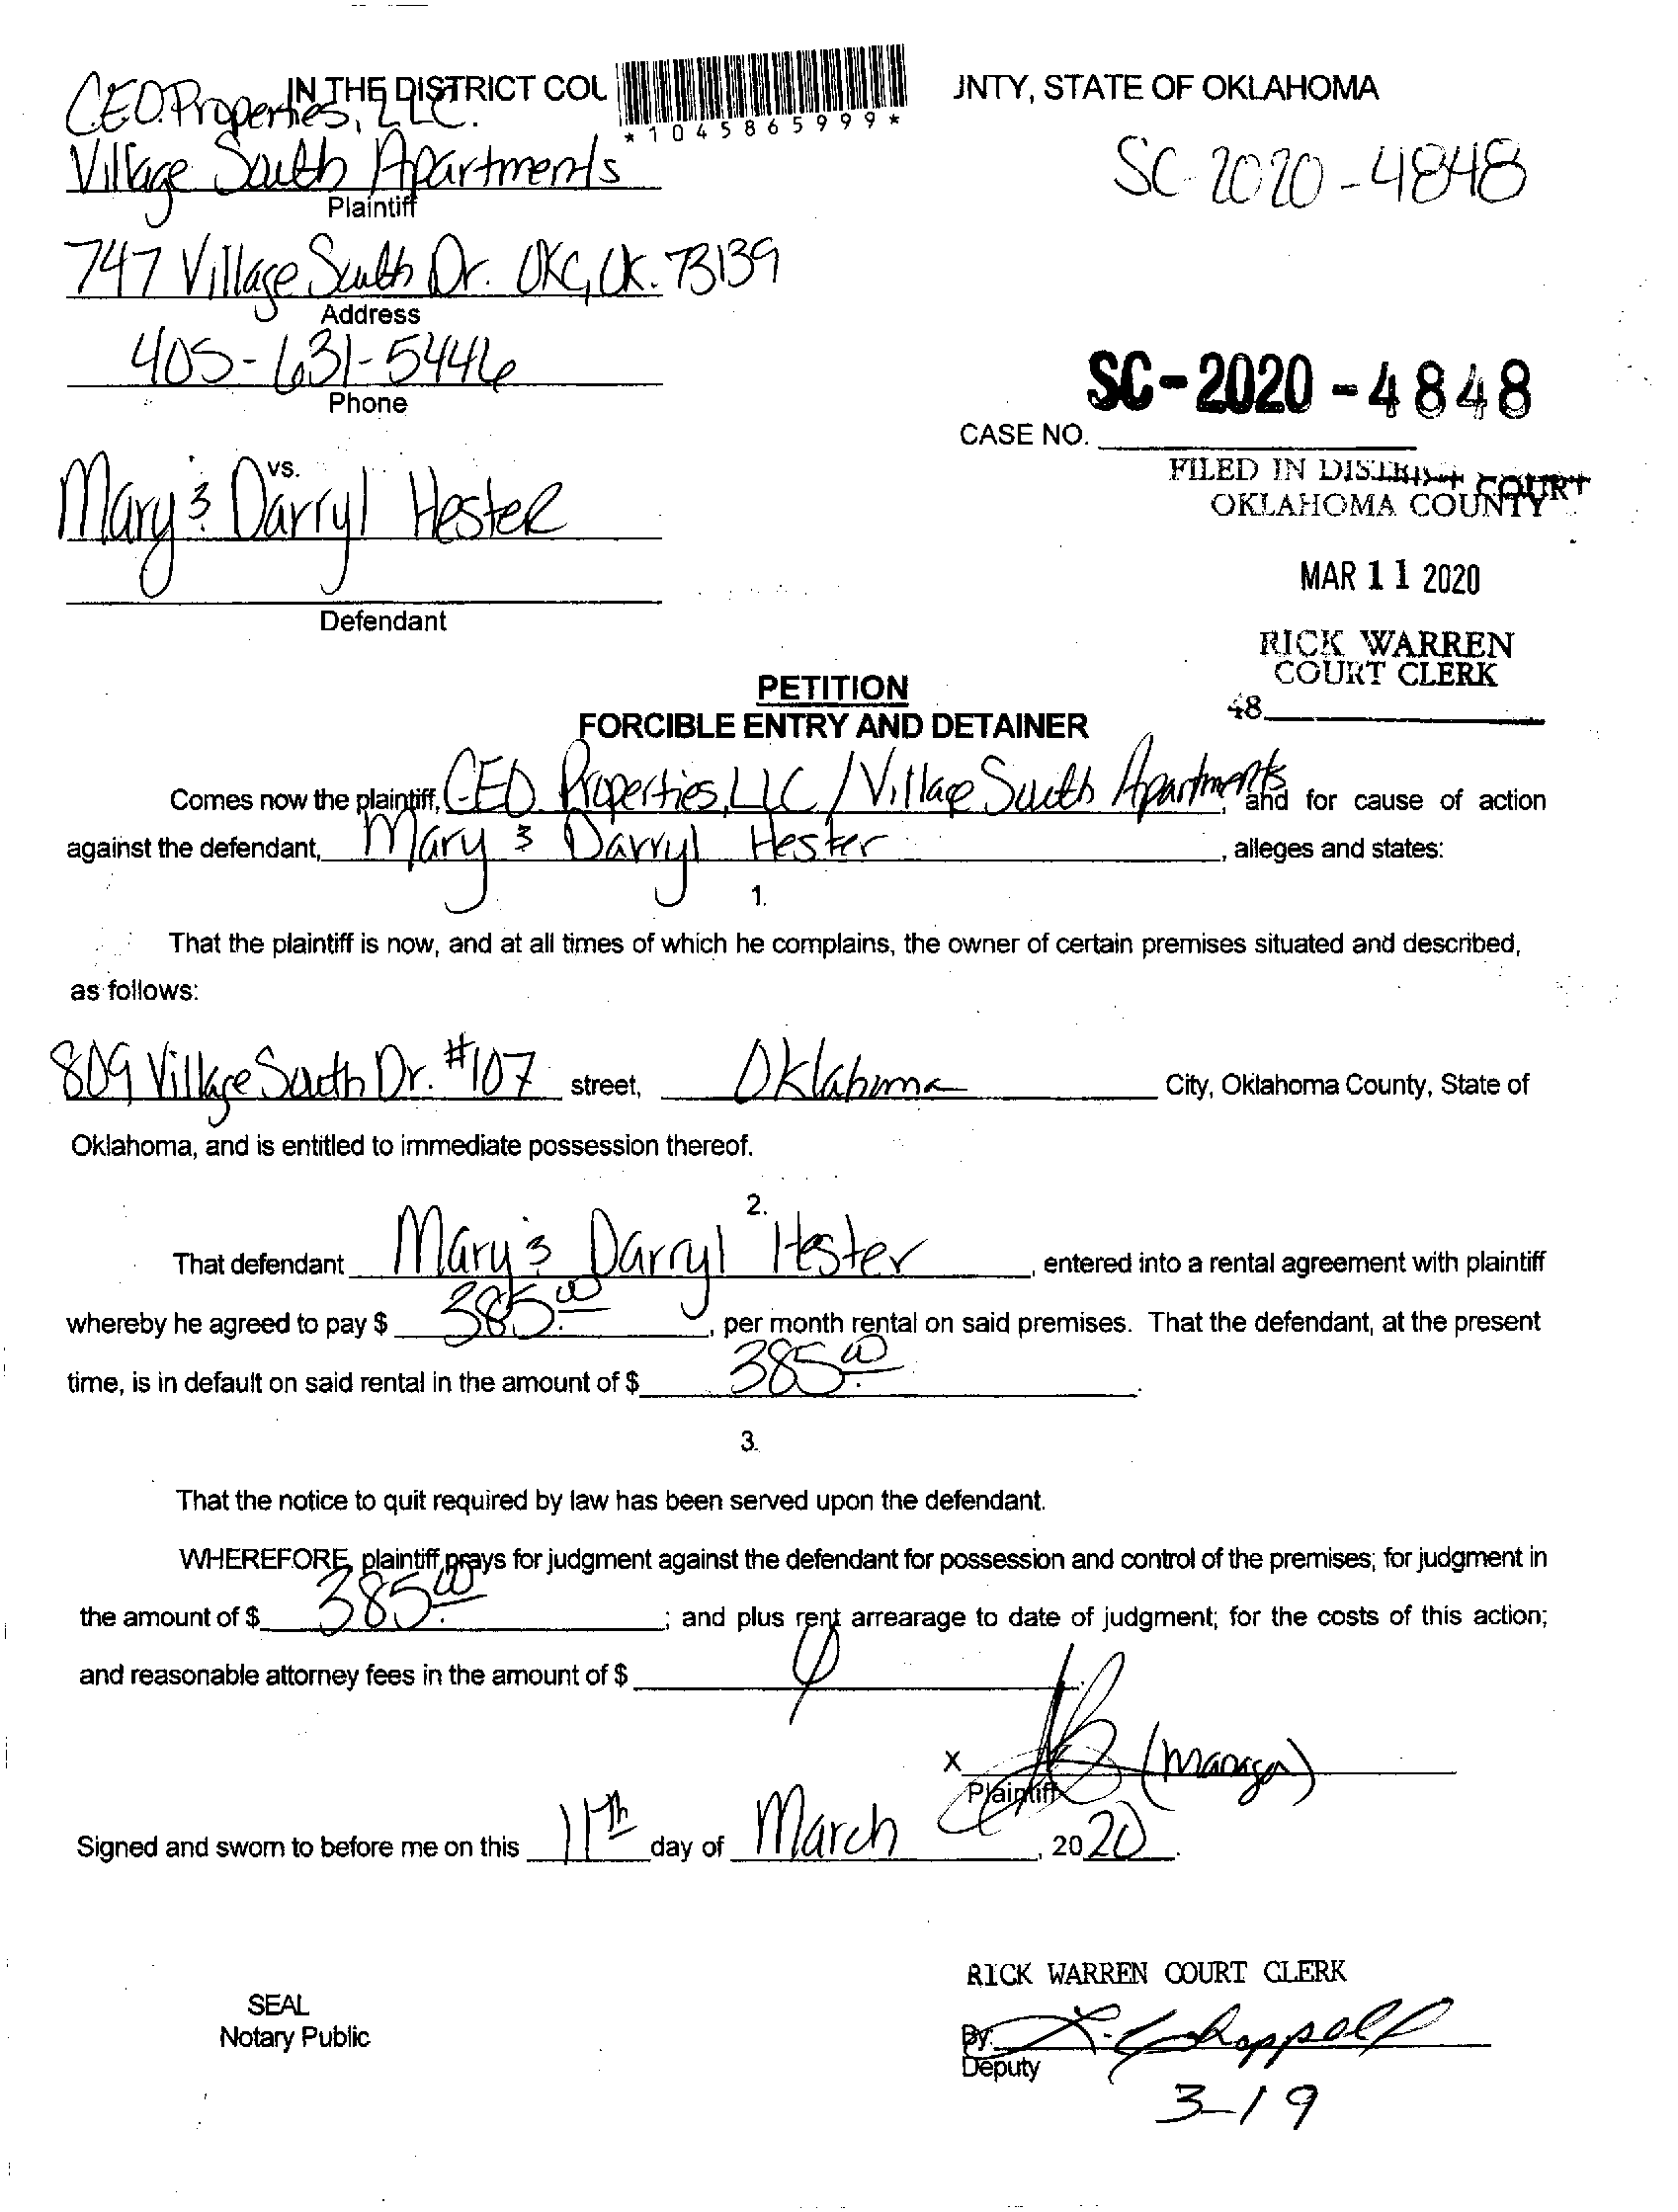 IN THE DISTRICT COU
UNTY, STATE OF OKLAHOMA
*1045865999*
C.E.O. Properties, LLC.
Village South Apartments
Plaintiff
SC-2020-4848
747 Village South Dr. OKC, OK. 73139
Address
405-631-5446
Phone
SC-2020-4848
CASE NO.
vs.
FILED IN DISTRICT COURT
OKLAHOMA COUNTY
Mary & Darryl Hester
MAR 11 2020
Defendant
RICK WARREN
COURT CLERK
48
PETITION
FORCIBLE ENTRY AND DETAINER
Comes now the plaintiff, CEO Properties, LLC / Village South Apartments, and for cause of action
against the defendant, Mary & Darryl Hester, alleges and states:
1.
That the plaintiff is now, and at all times of which he complains, the owner of certain premises situated and described,
as follows:
809 Village South Dr. #107 street, Oklahoma City, Oklahoma County, State of
Oklahoma, and is entitled to immediate possession thereof.
2.
That defendant Mary & Darryl Hester, entered into a rental agreement with plaintiff
whereby he agreed to pay $ 385.00, per month rental on said premises. That the defendant, at the present
time, is in default on said rental in the amount of $ 385.00.
3.
That the notice to quit required by law has been served upon the defendant.
WHEREFORE, plaintiff prays for judgment against the defendant for possession and control of the premises; for judgment in
the amount of $ 385.00; and plus rent arrearage to date of judgment; for the costs of this action;
and reasonable attorney fees in the amount of $ 0.
X (manager)
Plaintiff
Signed and sworn to before me on this 11th day of March, 2020.
RICK WARREN COURT CLERK
SEAL
Notary Public
By: L. Chappell
Deputy
3-19